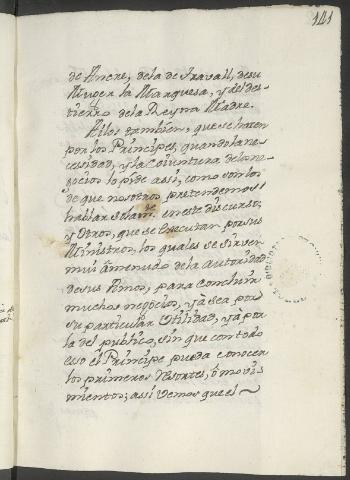 141
de Ancre, dela de Travall, desu
Muger la Marquesa, y del des-
tierro dela Reyna Madre.
Ailos tambien, que se hacen
por los Principes, quando la ne-
cessidad, y la Coiuntura delos ne-
gocios lo pide assi, como son los
de que nosotros pretendemos
hablar Solam.te en este discurso;
y Otros, que se Executan por sus
Ministros, los quales se sirven
mui amenudo de la autoridad
de sus Amos, para Concluir
muchos negocios, yà sea por
su particular Utilidad, yà por
la del publico, sin que con todo
esso el Principe pueda conocer
los primeros Resortes, ò movi-
mientos; assi Vemos que el